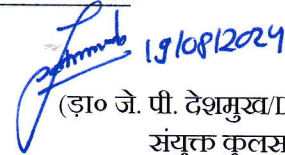 19/08/2024
(ड़ा० जे. पी. देशमुख/D
संयुक्त कुलस